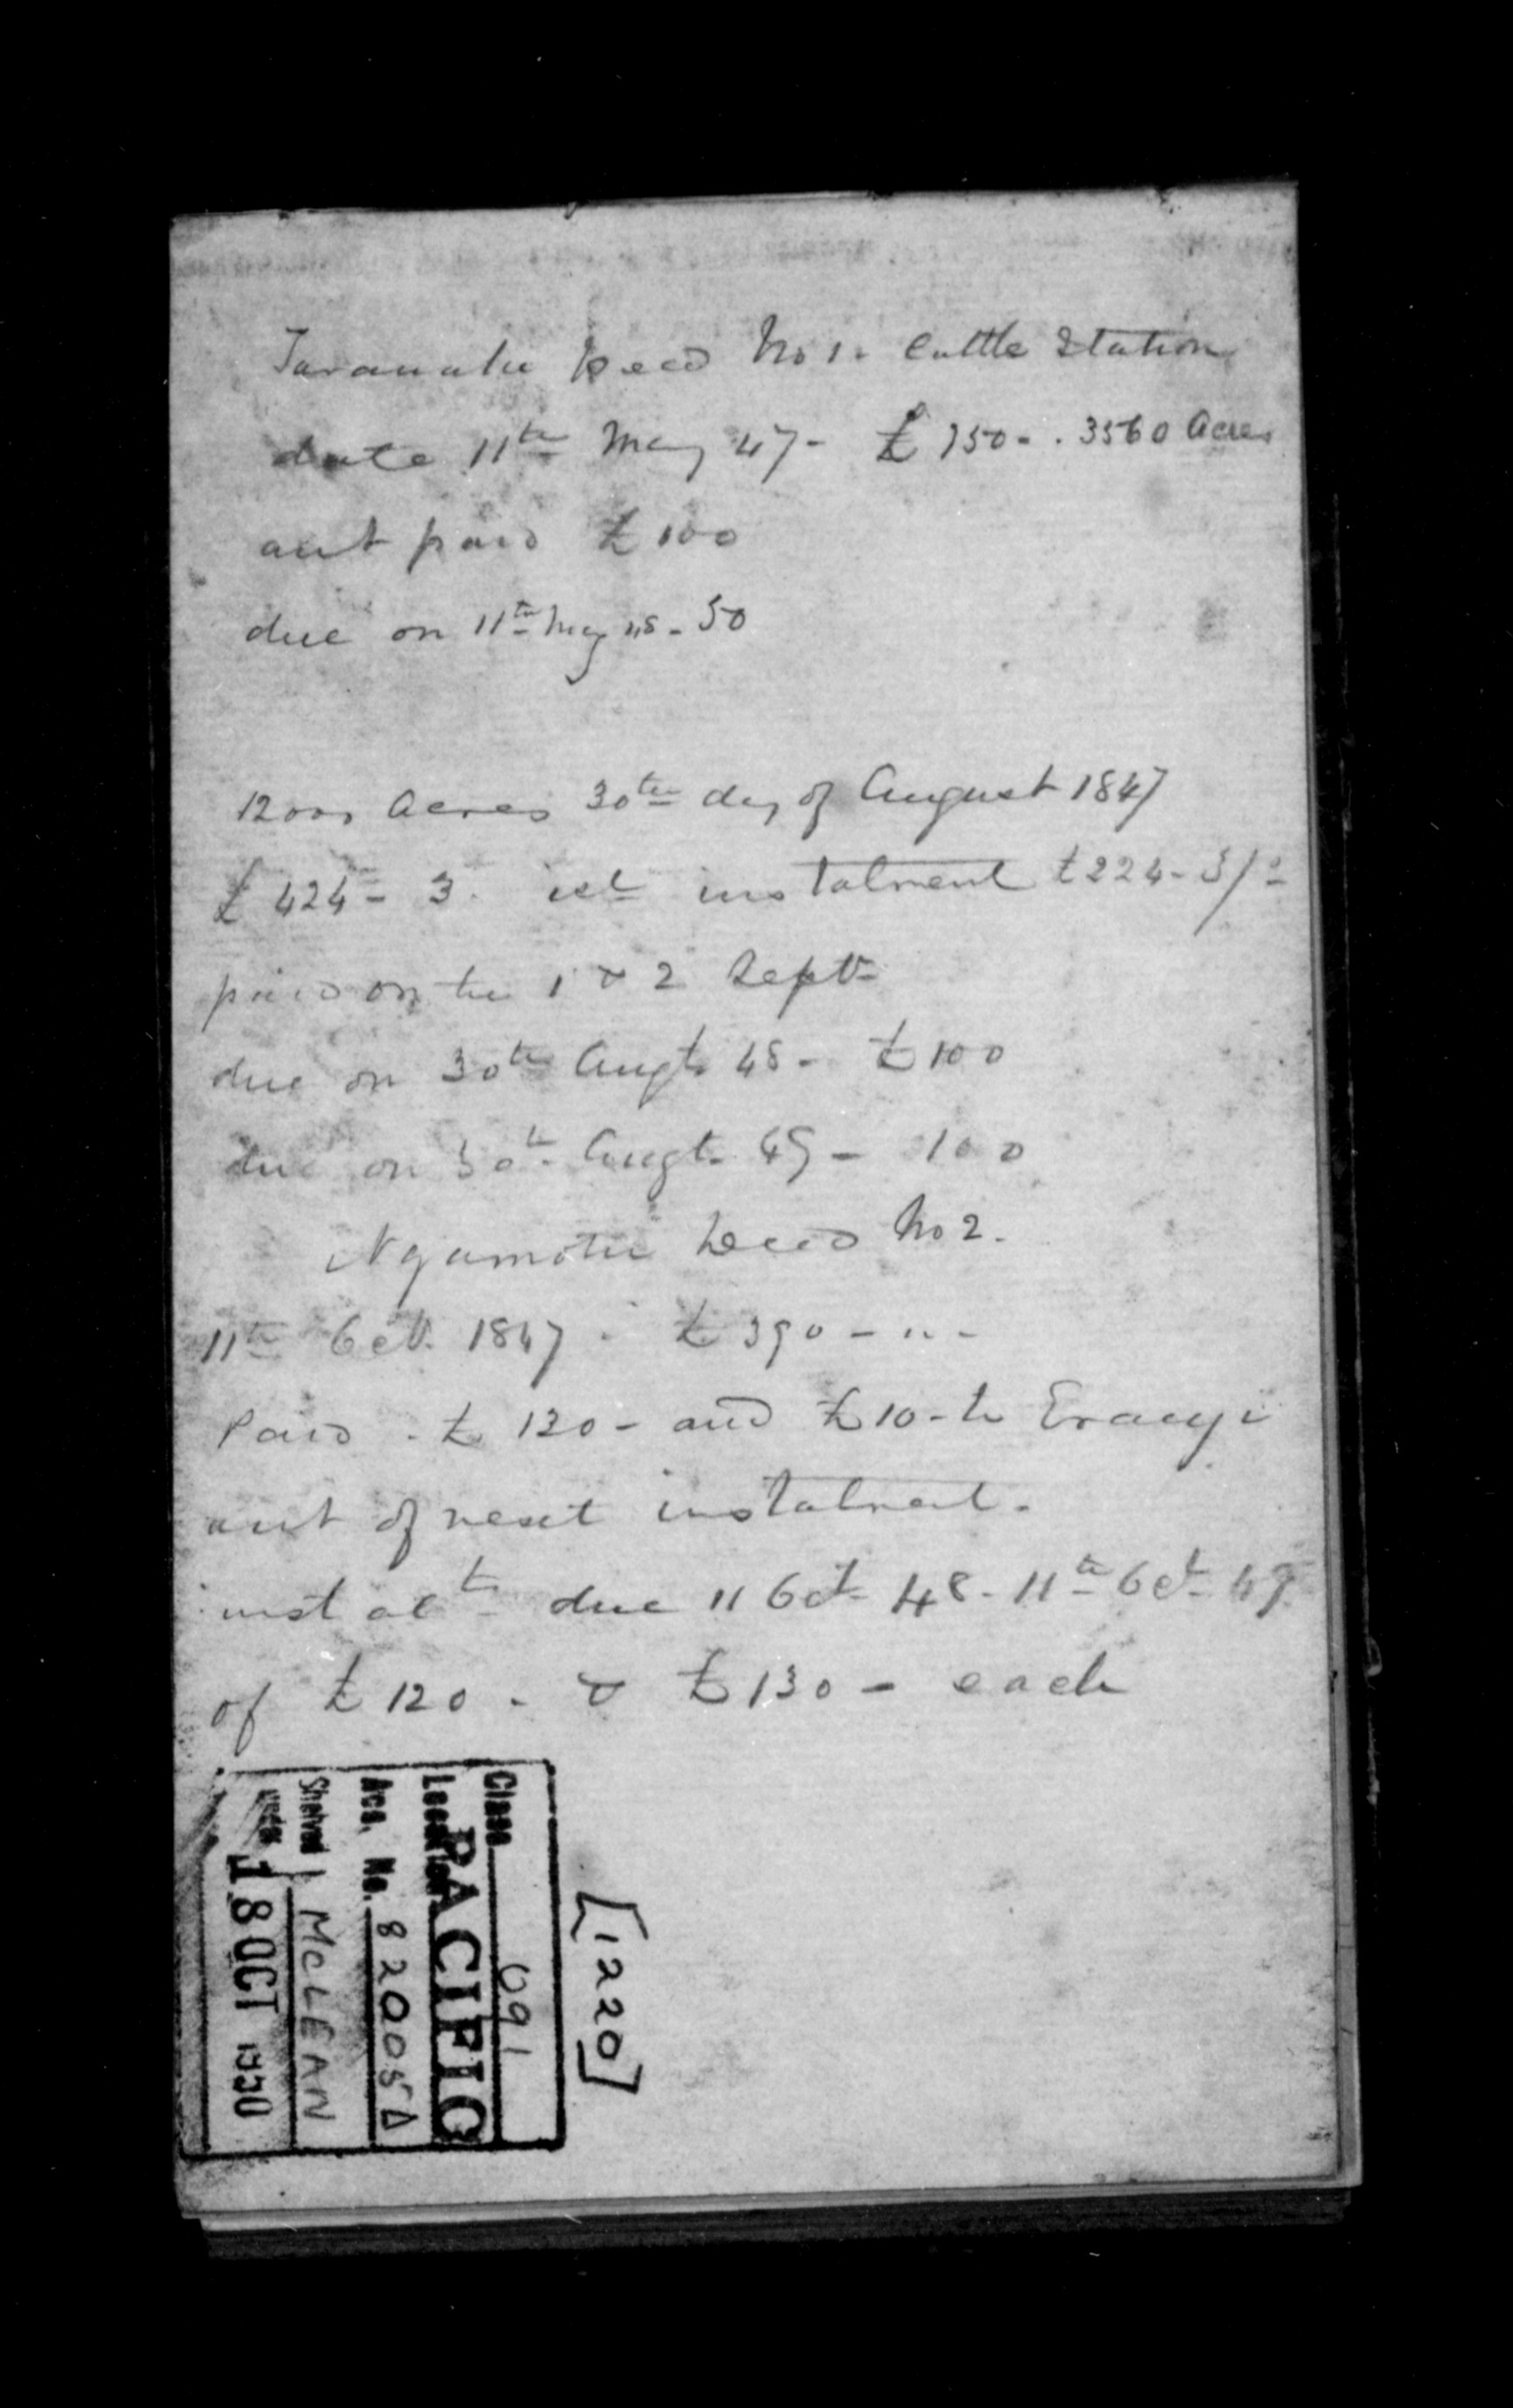 Taranaki Deed No 1. Cattle Station
date 11th May 47 - £150 - . 3560 Acres
amt paid £100
due on 11th May 48 - 50
12000 Acres 30th day of August 1847
£424 - 3. 1st instalment £224 - 3/-
paid on the 1 & 2 Sept
due on 30th Augt 48 - £100
due on 30th Augt 49 - 100
Ngamotu Deed No 2.
11th Oct. 1847 . £390 - " -
Paid . £130 - and £10 - to
amt of next instalment.
instalt due 11 Oct 48 - 11th Oct 49
of £120 - & £130 - each
[1220]
Class 091
Location PACIFIC
Acc. No. 82005D
Shelved under McLEAN
18 OCT